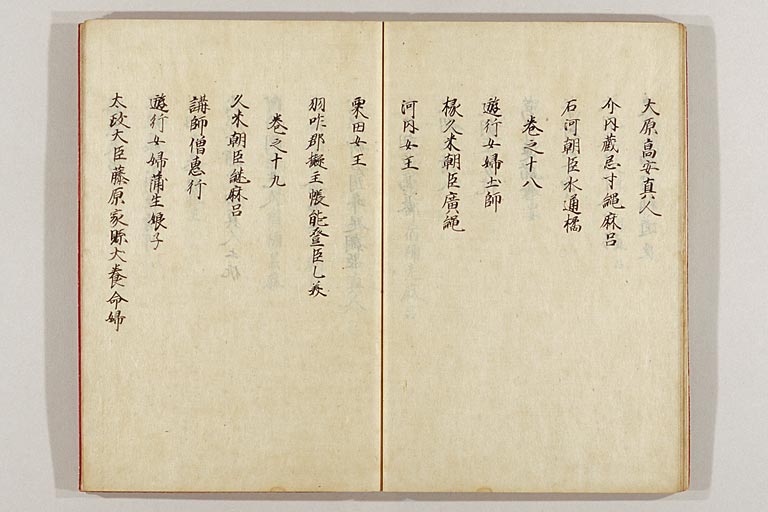 大原高安真人
介内蔵忌寸縄麻呂
石河朝臣水通橘
巻之十八
遊行女婦土師
掾久米朝臣廣縄
河内女王
粟田女王
羽咋郡擬主帳能登臣乙美
巻之十九
久米朝臣継麻呂
講師僧惠行
遊行女婦蒲生娘子
太政大臣藤原家縣犬養命婦